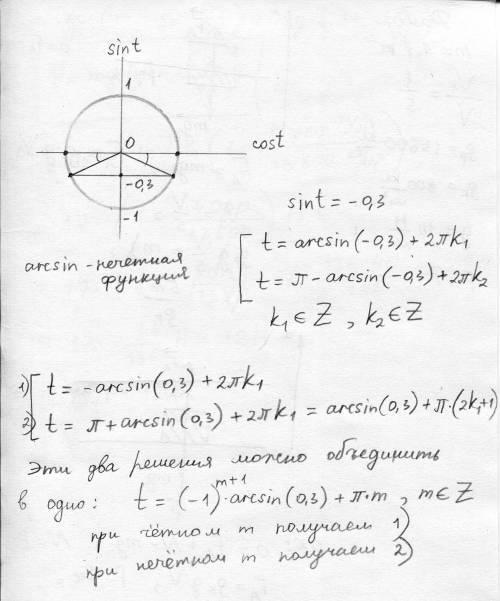 sint
1
0
cost
-0,3
-1
sint = -0,3
arcsin - нечетная
функция
t = arcsin(-0,3) + 2πk₁
t = π - arcsin(-0,3) + 2πk₂
k₁ ∈ Z , k₂ ∈ Z
1) t = -arcsin(0,3) + 2πk₁
2) t = π + arcsin(0,3) + 2πk₁ = arcsin(0,3) + π·(2k₁+1)
Эти два решения можно объединить
в одно: t = (-1)^(m+1)·arcsin(0,3) + π·m , m ∈ Z
при чётном m получаем 1)
при нечётном m получаем 2)